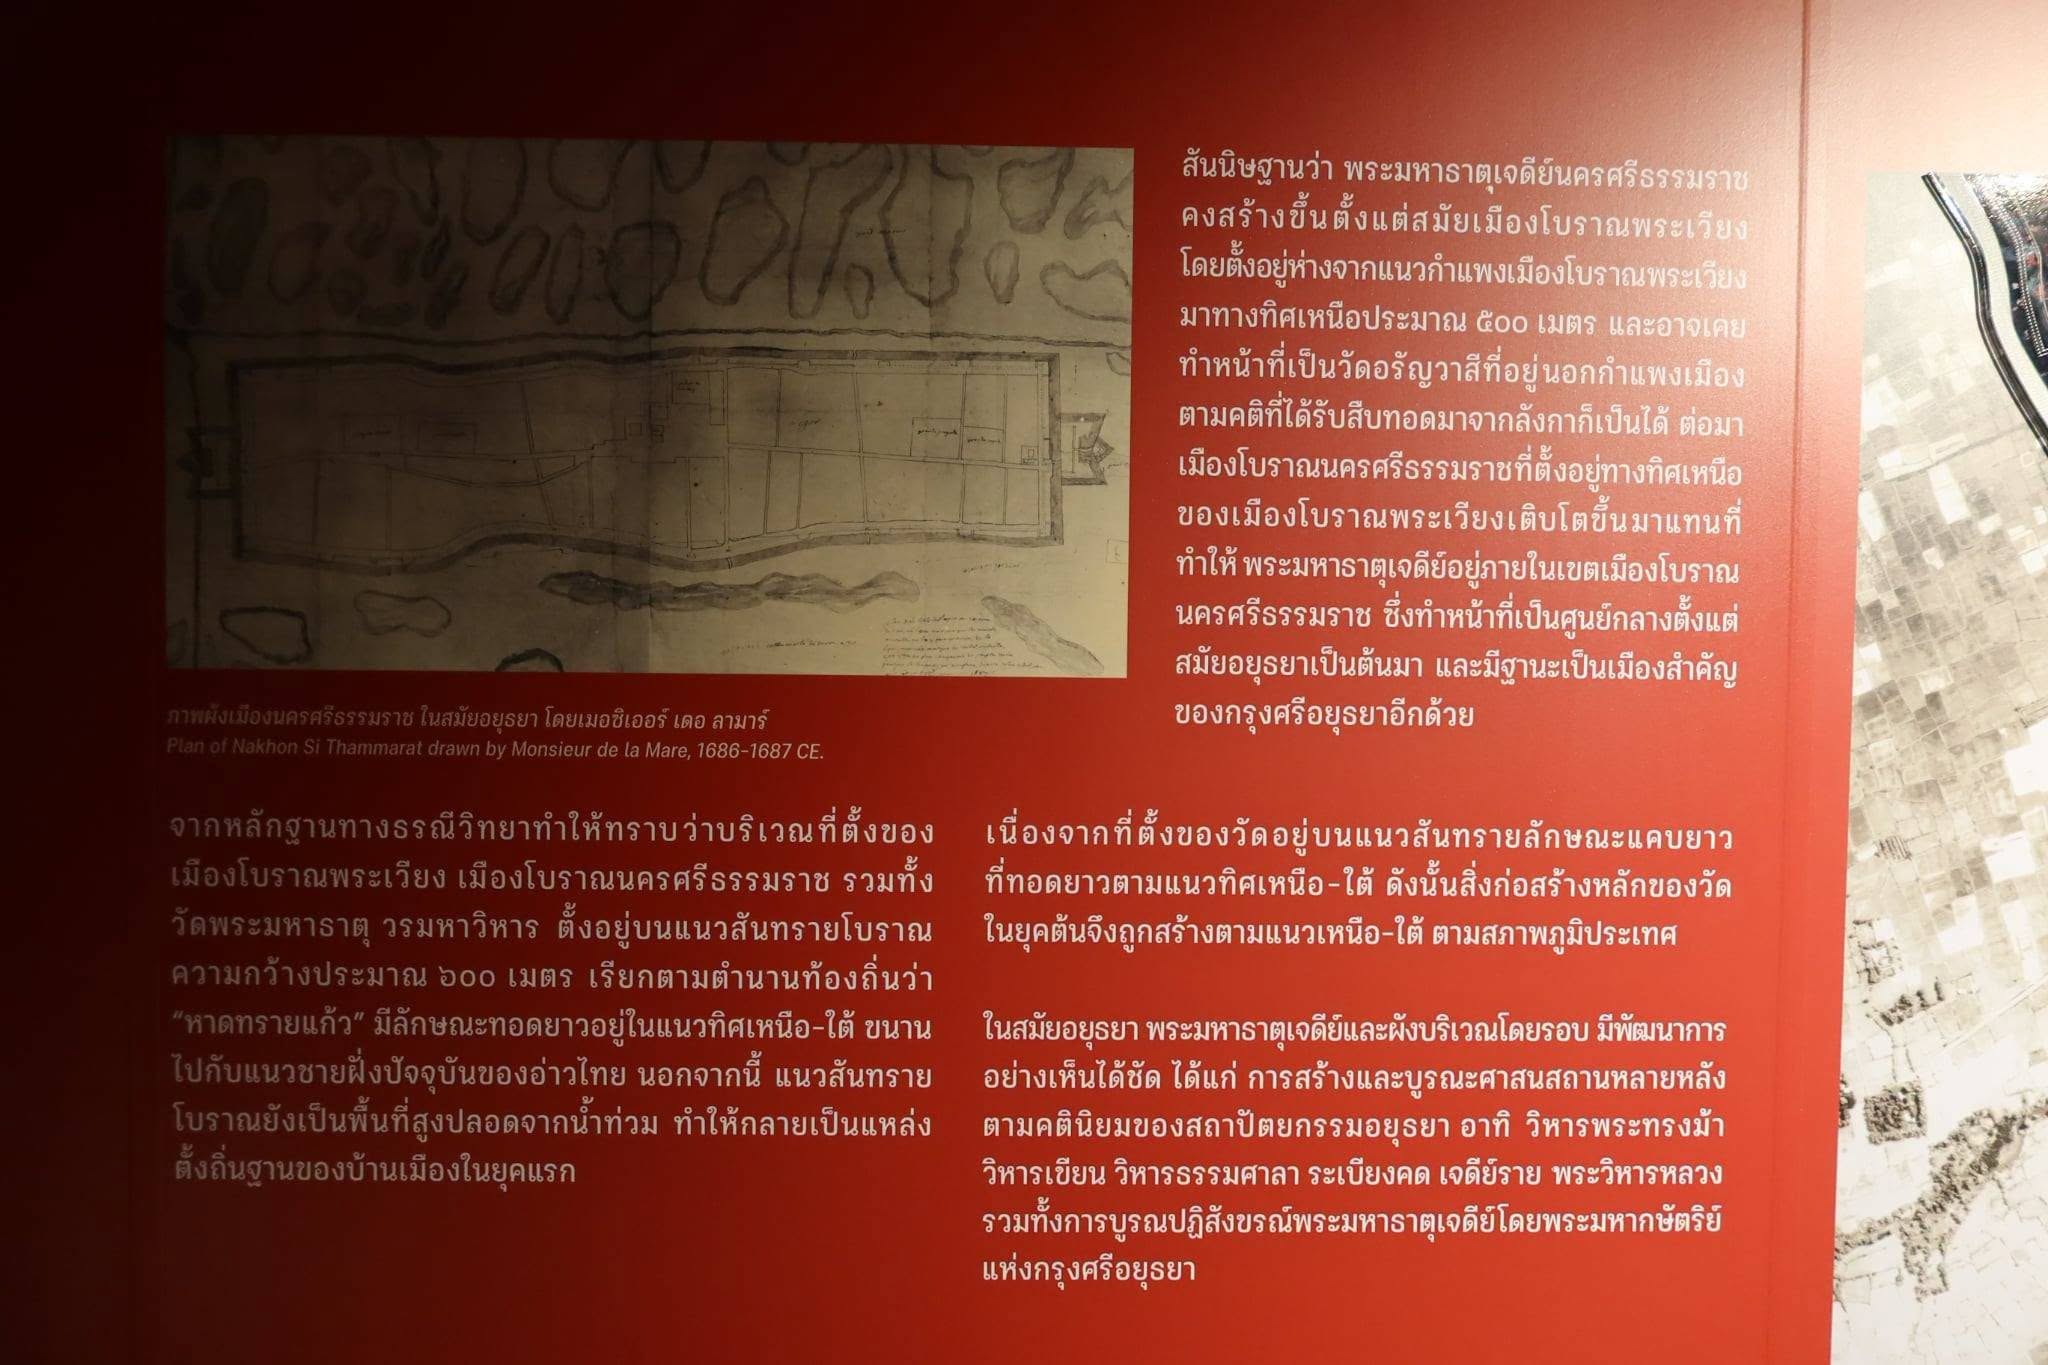 สันนิษฐานว่า พระมหาธาตุเจดีย์นครศรีธรรมราช
คงสร้างขึ้นตั้งแต่สมัยเมืองโบราณพระเวียง
โดยตั้งอยู่ห่างจากแนวกำแพงเมืองโบราณพระเวียง
มาทางทิศเหนือประมาณ ๕๐๐ เมตร และอาจเคย
ทำหน้าที่เป็นวัดอรัญวาสีที่อยู่นอกกำแพงเมือง
ตามคติที่ได้รับสืบทอดมาจากลังกาก็เป็นได้ ต่อมา
เมืองโบราณนครศรีธรรมราชที่ตั้งอยู่ทางทิศเหนือ
ของเมืองโบราณพระเวียงเติบโตขึ้นมาแทนที่
ทำให้ พระมหาธาตุเจดีย์อยู่ภายในเขตเมืองโบราณ
นครศรีธรรมราช ซึ่งทำหน้าที่เป็นศูนย์กลางตั้งแต่
สมัยอยุธยาเป็นต้นมา และมีฐานะเป็นเมืองสำคัญ
ของกรุงศรีอยุธยาอีกด้วย
ภาพผังเมืองนครศรีธรรมราช ในสมัยอยุธยา โดยเมอซิเออร์ เดอ ลามาร์
Plan of Nakhon Si Thammarat drawn by Monsieur de la Mare, 1686-1687 CE.
จากหลักฐานทางธรณีวิทยาทำให้ทราบว่าบริเวณที่ตั้งของ
เมืองโบราณพระเวียง เมืองโบราณนครศรีธรรมราช รวมทั้ง
วัดพระมหาธาตุ วรมหาวิหาร ตั้งอยู่บนแนวสันทรายโบราณ
ความกว้างประมาณ ๖๐๐ เมตร เรียกตามตำนานท้องถิ่นว่า
“หาดทรายแก้ว” มีลักษณะทอดยาวอยู่ในแนวทิศเหนือ-ใต้ ขนาน
ไปกับแนวชายฝั่งปัจจุบันของอ่าวไทย นอกจากนี้ แนวสันทราย
โบราณยังเป็นพื้นที่สูงปลอดจากน้ำท่วม ทำให้กลายเป็นแหล่ง
ตั้งถิ่นฐานของบ้านเมืองในยุคแรก
เนื่องจากที่ตั้งของวัดอยู่บนแนวสันทรายลักษณะแคบยาว
ที่ทอดยาวตามแนวทิศเหนือ-ใต้ ดังนั้นสิ่งก่อสร้างหลักของวัด
ในยุคต้นจึงถูกสร้างตามแนวเหนือ-ใต้ ตามสภาพภูมิประเทศ
ในสมัยอยุธยา พระมหาธาตุเจดีย์และผังบริเวณโดยรอบ มีพัฒนาการ
อย่างเห็นได้ชัด ได้แก่ การสร้างและบูรณะศาสนสถานหลายหลัง
ตามคตินิยมของสถาปัตยกรรมอยุธยา อาทิ วิหารพระทรงม้า
วิหารเขียน วิหารธรรมศาลา ระเบียงคด เจดีย์ราย พระวิหารหลวง
รวมทั้งการบูรณปฏิสังขรณ์พระมหาธาตุเจดีย์โดยพระมหากษัตริย์
แห่งกรุงศรีอยุธยา